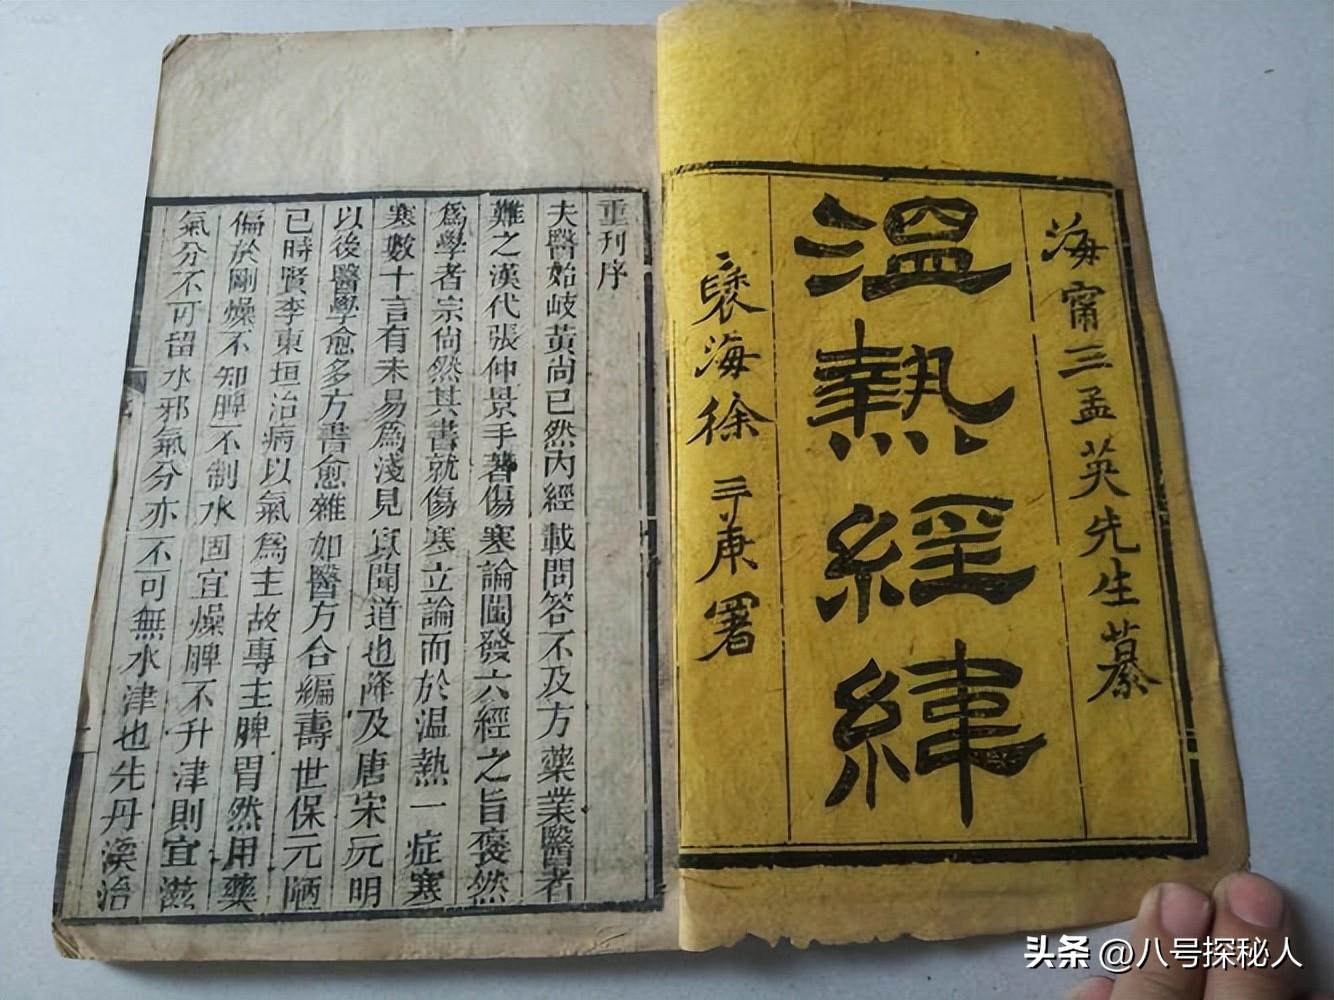 海甯王孟英先生纂
溫熱經緯
褱海徐三庚署
重刊序
夫醫始岐黃尚已然內經載問答不及方藥業醫者
難之漢代張仲景手著傷寒論闡發六經之旨裒然
爲學者宗尙然其書就傷寒立論而於溫熱一症寥
寥數十言有未易爲淺見寡聞道也降及唐宋元明
以後醫學愈多方書愈雜如醫方合編壽世保元陋
已時賢李東垣治病以氣爲主故專主脾胃然用藥
偏於剛燥不知脾不制水固宜燥脾不升津則宜滋
氣分不可留水邪氣分亦不可無水津也先丹溪治
头条 @八号探秘人